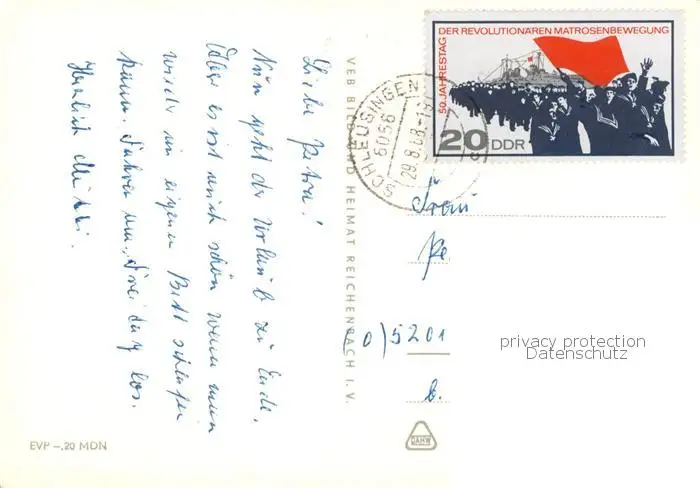 Liebe Petra!
Nun geht der Urlaub zu Ende.
Aber es ist auch schön wenn man
wieder im eigenen Bett schlafen
kann. Fahren um
los.
Herzlich
VEB BILD UND HEIMAT REICHENBACH I. V.
50. JAHRESTAG DER REVOLUTIONÄREN MATROSENBEWEGUNG
20 DDR
SCHLEUSINGEN
6056
29.8.68
Frau
Pe
(0)5201
b.
privacy protection
Datenschutz
EVP –,20 MDN